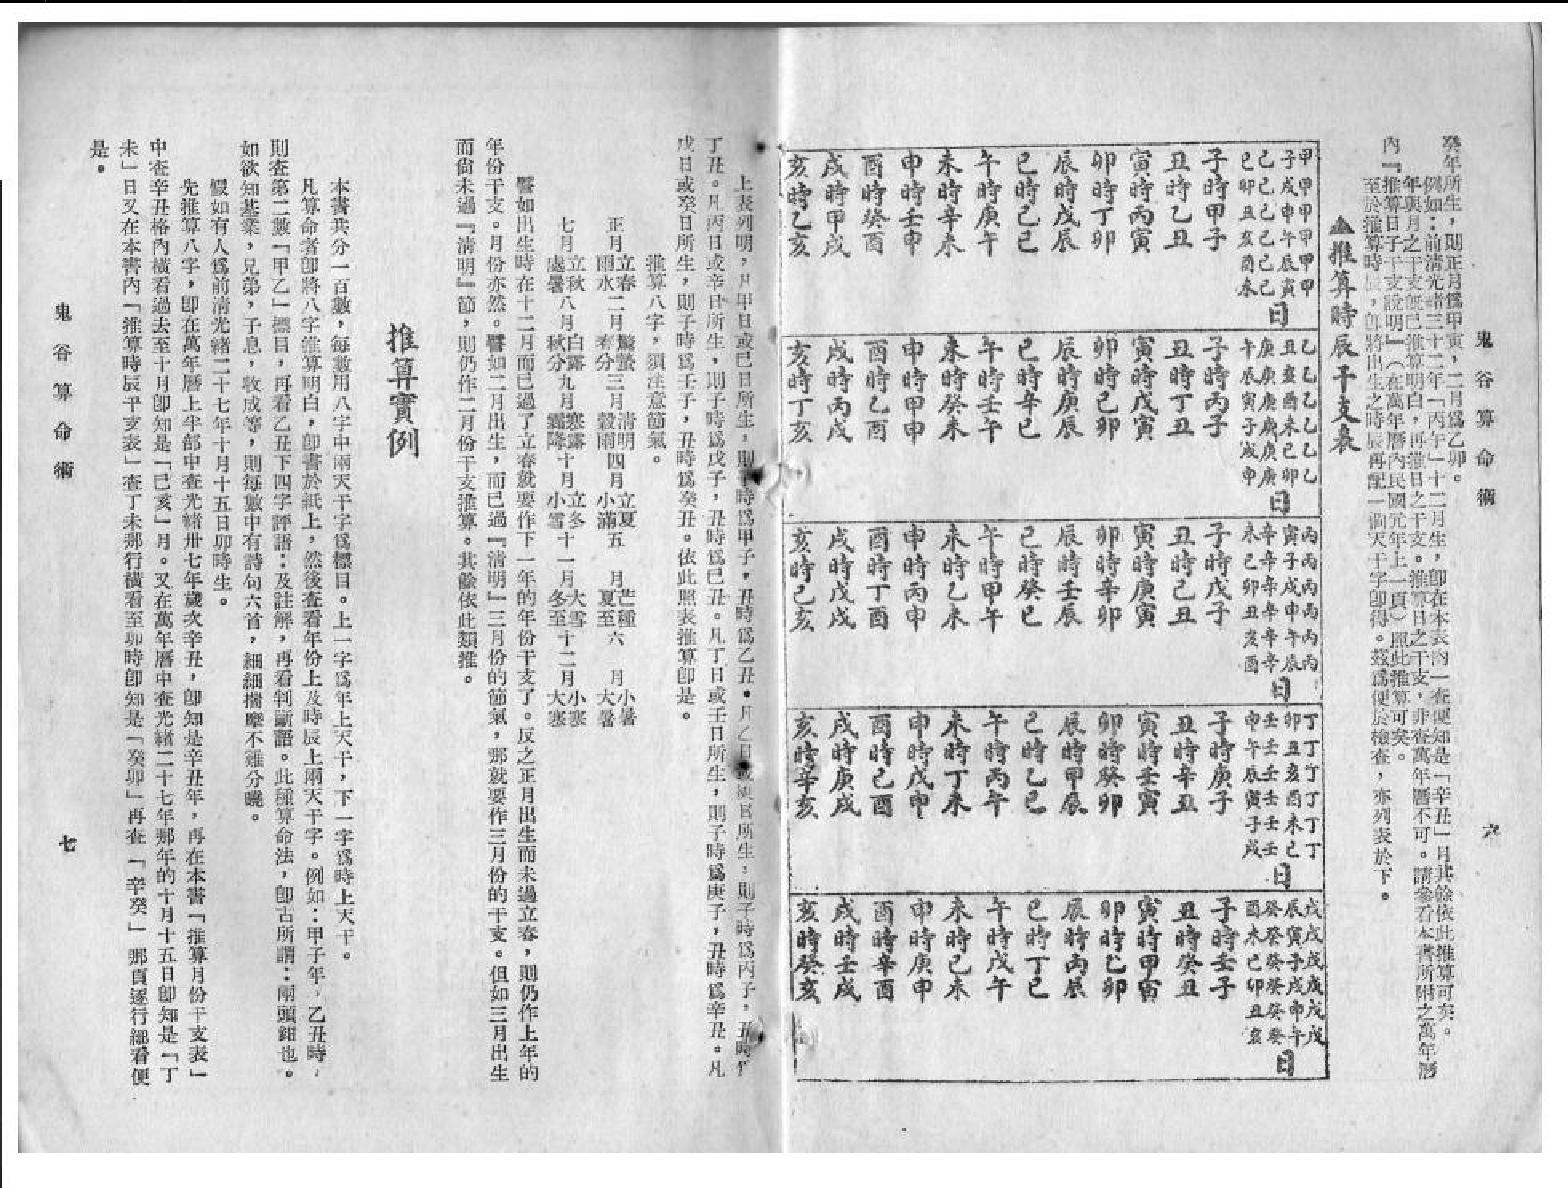 鬼谷算命術
六
癸年所生，則正月爲甲寅，二月爲乙卯。
例如：前清光緒三十二年「丙午」十二月生，卽在本表內一查便知是「辛丑」月其餘依此推算可矣。
年與月之干支旣已推算明白，再推日之干支。推算日之干支，非查萬年曆不可。請參看本書所附之萬年曆
內『推算日子干支說明』（在萬年曆內民國元年上一頁）照此推算可矣。
至於推算時辰，卽將出生之時辰再配一個天干字卽得。茲爲便於檢查，亦列表於下。
▲推算時辰干支表
甲甲甲甲甲甲
子戌申午辰寅
己己己己己己
巳卯丑亥酉未
日
子時甲子
丑時乙丑
寅時丙寅
卯時丁卯
辰時戊辰
巳時己巳
午時庚午
未時辛未
申時壬申
酉時癸酉
戌時甲戌
亥時乙亥
乙乙乙乙乙乙
丑亥酉未巳卯
庚庚庚庚庚庚
午辰寅子戌申
日
子時丙子
丑時丁丑
寅時戊寅
卯時己卯
辰時庚辰
巳時辛巳
午時壬午
未時癸未
申時甲申
酉時乙酉
戌時丙戌
亥時丁亥
丙丙丙丙丙丙
寅子戌申午辰
辛辛辛辛辛辛
未巳卯丑亥酉
日
子時戊子
丑時己丑
寅時庚寅
卯時辛卯
辰時壬辰
巳時癸巳
午時甲午
未時乙未
申時丙申
酉時丁酉
戌時戊戌
亥時己亥
丁丁丁丁丁丁
卯丑亥酉未巳
壬壬壬壬壬壬
申午辰寅子戌
日
子時庚子
丑時辛丑
寅時壬寅
卯時癸卯
辰時甲辰
巳時乙巳
午時丙午
未時丁未
申時戊申
酉時己酉
戌時庚戌
亥時辛亥
戊戊戊戊戊戊
辰寅子戌申午
癸癸癸癸癸癸
酉未巳卯丑亥
日
子時壬子
丑時癸丑
寅時甲寅
卯時乙卯
辰時丙辰
巳時丁巳
午時戊午
未時己未
申時庚申
酉時辛酉
戌時壬戌
亥時癸亥
上表列明，凡甲日或己日所生，則子時爲甲子，丑時爲乙丑。凡乙日或庚日所生，則子時爲丙子，丑時爲
丁丑。凡丙日或辛日所生，則子時爲戊子，丑時爲己丑。凡丁日或壬日所生，則子時爲庚子，丑時爲辛丑。凡
戊日或癸日所生，則子時爲壬子，丑時爲癸丑。依此照表推算卽是。
推算八字，須注意節氣。
正月立春雨水二月驚蟄春分三月清明穀雨四月立夏小滿五月芒種夏至六月小暑大暑
七月立秋處暑八月白露秋分九月寒露霜降十月立冬小雪十一月大雪冬至十二月小寒大寒
譬如出生時在十二月而已過了立春就要作下一年的年份干支了。反之正月出生而未過立春，則仍作上年的
年份干支。月份亦然。譬如二月出生，而已過『清明』三月份的節氣，那就要作三月份的干支。但如三月出生
而尙未過『清明』節，則仍作二月份干支推算。其餘依此類推。
推算實例
本書共分一百數，每數用八字中兩天干字爲標目。上一字爲年上天干，下一字爲時上天干。
凡算命者卽將八字推算明白，卽書於紙上，然後查看年份上及時辰上兩天干字。例如：甲子年，乙丑時，
則查第二數「甲乙」標目，再看乙丑下四字評語：及註解，再看判斷語。此種算命法，卽古所謂：兩頭鉗也。
如欲知基業，兄弟，子息，收成等，則每數中有詩句六首，細細揣摩不難分曉。
假如有人爲前清光緒二十七年十月十五日卯時生。
先推算八字，卽在萬年曆上半部中查光緒卅七年歲次辛丑，卽知是辛丑年，再在本書「推算月份干支表」
中查辛丑格內橫看過去至十月卽知是「己亥」月。又在萬年曆中查光緒二十七年那年的十月十五日卽知是「丁
未」日又在本書內「推算時辰干支表」查丁未那行橫看至卯時卽知是「癸卯」再查「辛癸」那頁逐行細看便
是。
鬼谷算命術
七